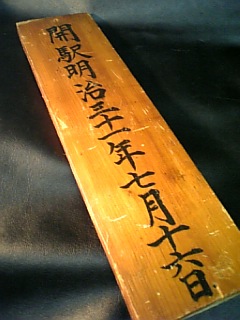 開駅明治三十一年七月十六日